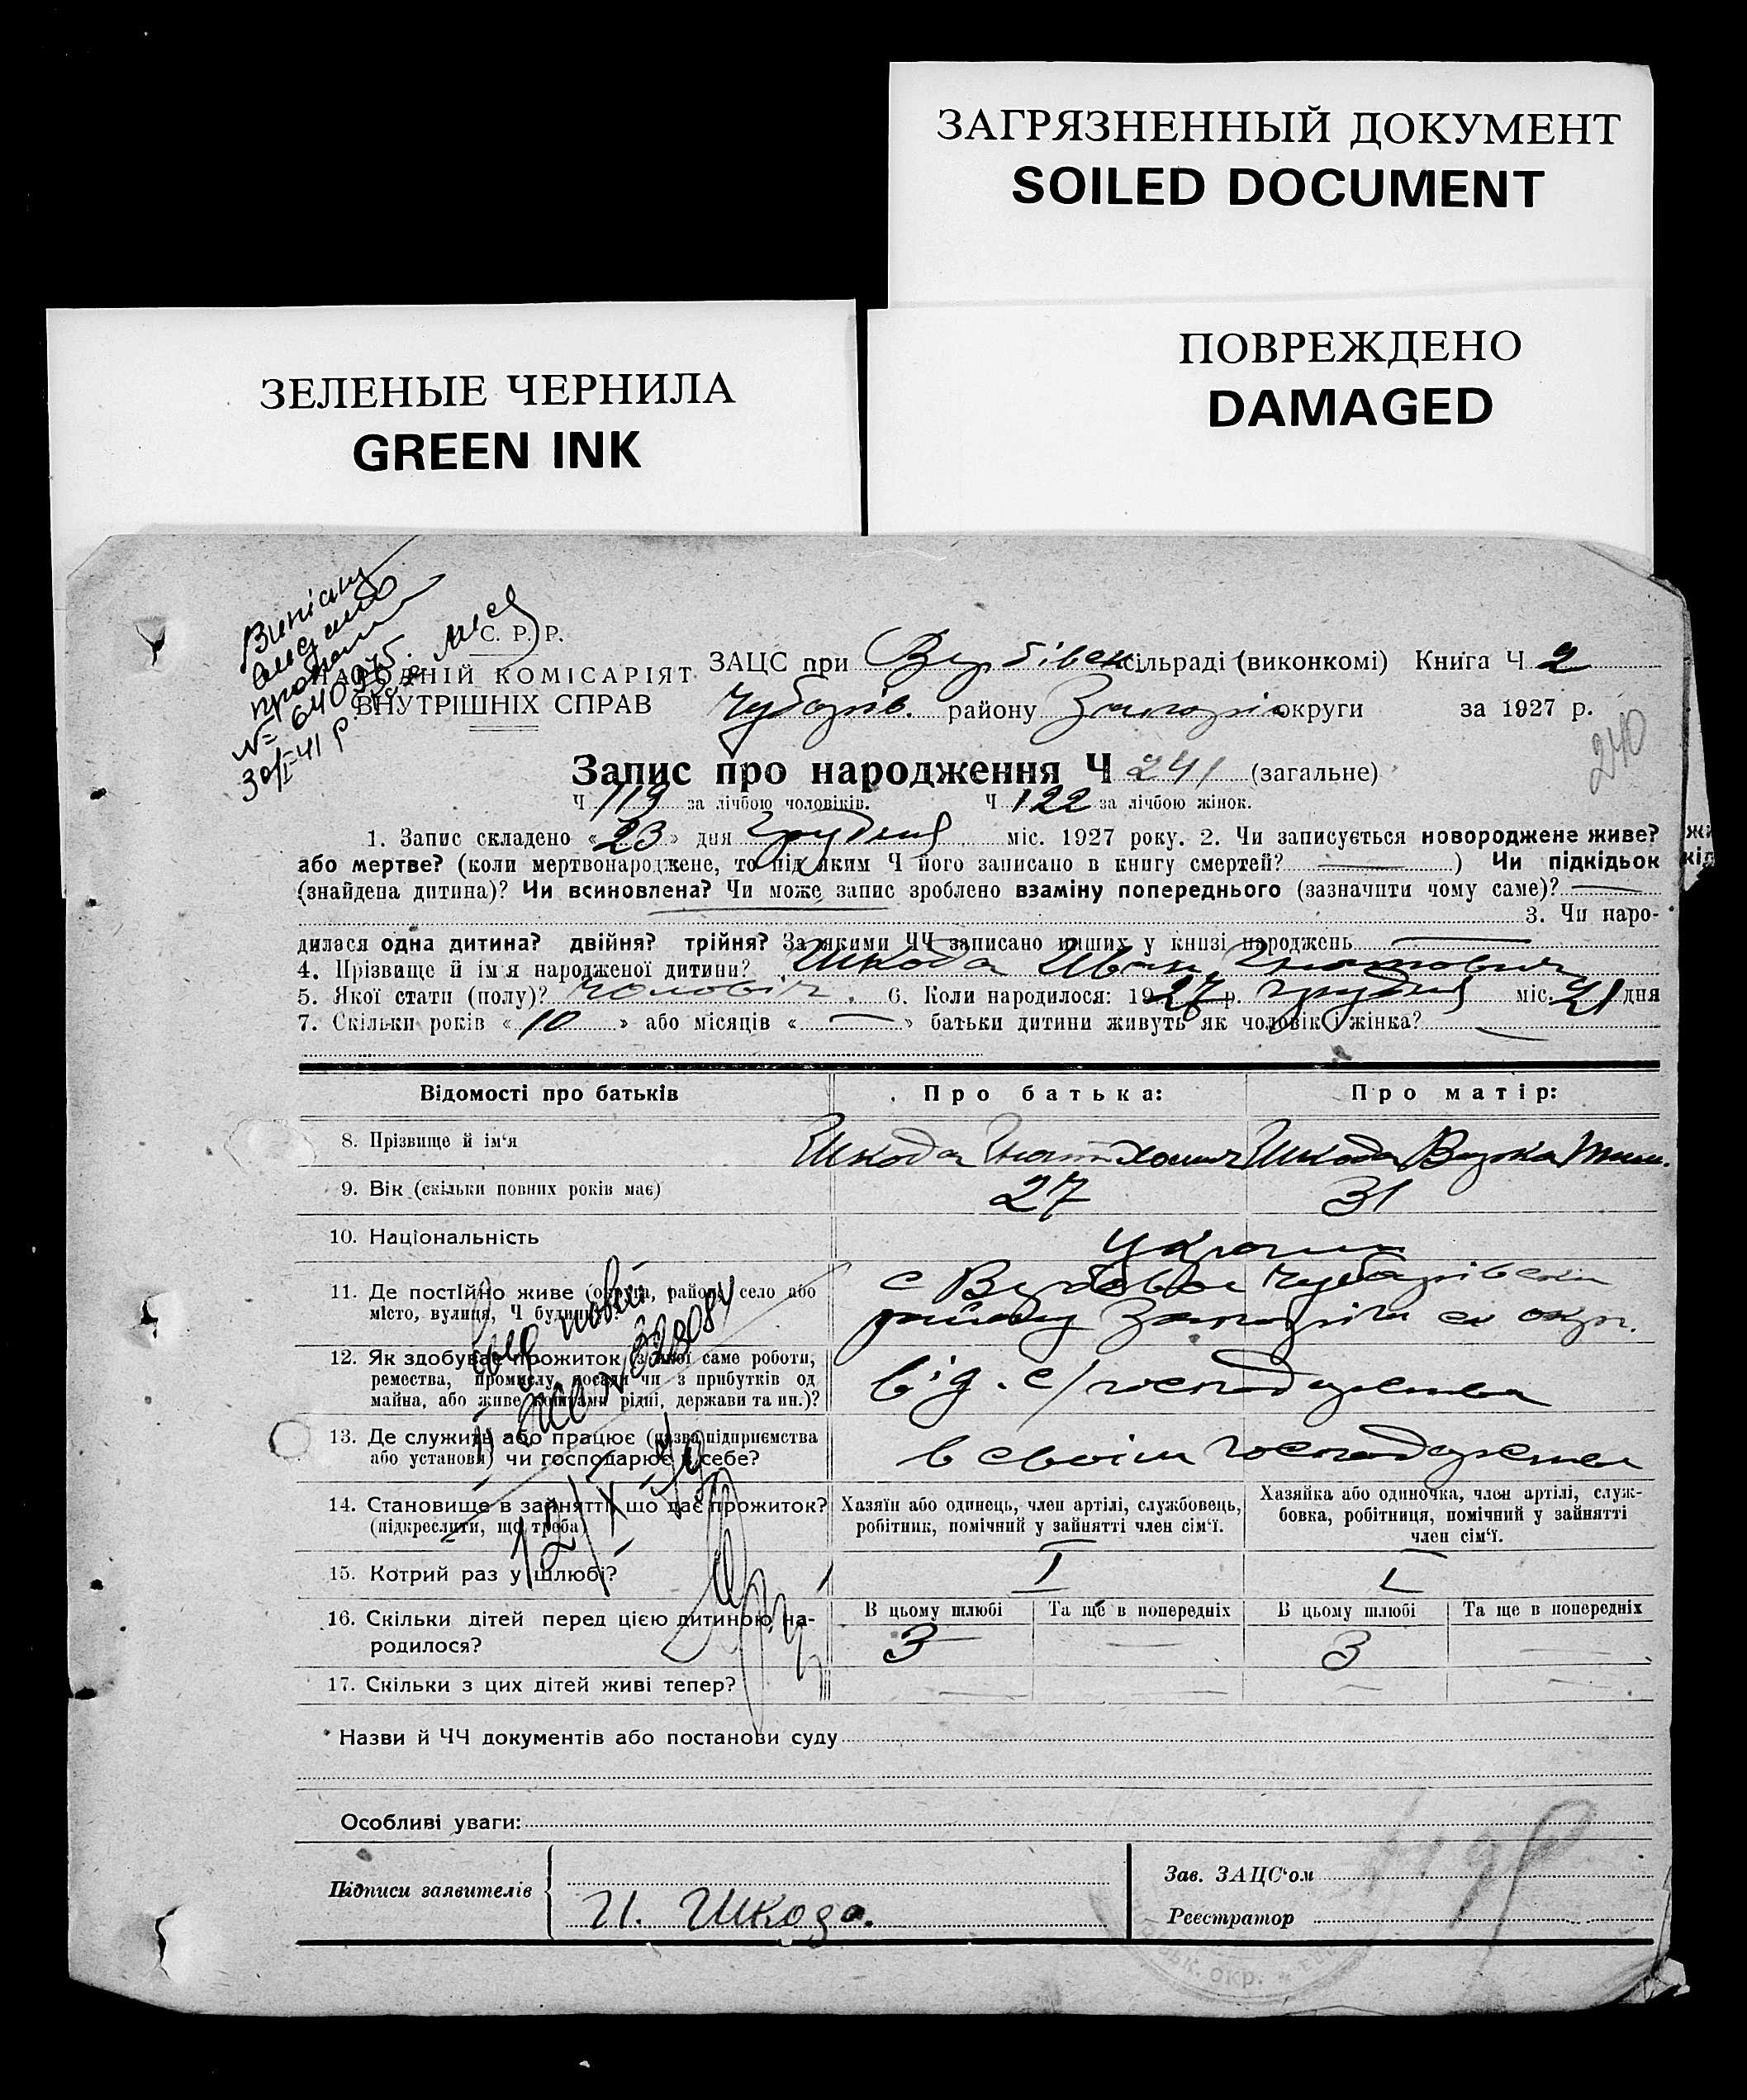 ЗАГРЯЗНЕННЫЙ ДОКУМЕНТ
SOILED DOCUMENT
ПОВРЕЖДЕНО
DAMAGED
ЗЕЛЕНЫЕ ЧЕРНИЛА
GREEN INK
№ 640975.
30/I-41 р.
С. Р. Р.
НАРОДНІЙ КОМІСАРІЯТ
ВНУТРІШНІХ СПРАВ
ЗАЦС при Вербівськ сільраді (виконкомі) Книга Ч 2
Чубарів. району округи за 1927 р.
240
Запис про народження Ч 241 (загальне)
Ч 119 за лічбою чоловіків. Ч 122 за лічбою жінок.
1. Запис складено «23» дня грудня міс. 1927 року. 2. Чи записується новороджене живе?
або мертве? (коли мертвонароджене, то під яким Ч його записано в книгу смертей? —) Чи підкідьок
(знайдена дитина)? Чи всиновлена? Чи може запис зроблено взаміну попереднього (зазначити чому саме)? —
3. Чи наро-
дилася одна дитина? двійня? трійня? За якими ЧЧ записано инших у книзі народжень —
4. Прізвище й ім'я народженої дитини? Шкода Іван Гнатович
5. Якої стати (полу)? чоловіч. 6. Коли народилося: 1927 р. грудня міс. 21 дня
7. Скільки років «10» або місяців «—» батьки дитини живуть як чоловік і жінка? —
Відомості про батьків Про батька: Про матір:
8. Прізвище й ім'я Шкода Гнат Шкода
9. Вік (скільки повних років має) 27 31
10. Національність україн
11. Де постійно живе (округа, район, село або
місто, вулиця, Ч будинку)?
с Вербове Чубарівськ
району окр.
12. Як здобуває прожиток (з якої саме роботи,
ремества, промислу, посади чи з прибутків од
майна, або живе коштами рідні, держави та ин.)?
від с/господарства
13. Де служить або працює (назва підприємства
або установи) чи господарює в себе?
в своїм господарстві
14. Становище в зайнятті, що дає прожиток?
(підкреслити, що треба)
Хазяїн або одинець, член артілі, службовець,
робітник, помічний у зайнятті член сім'ї.
Хазяйка або одиночка, член артілі, служ-
бовка, робітниця, помічний у зайнятті
член сім'ї.
15. Котрий раз у шлюбі? I I
16. Скільки дітей перед цією дитиною на-
родилося?
В цьому шлюбі Та ще в попередніх В цьому шлюбі Та ще в попередніх
3 — 3 —
17. Скільки з цих дітей живі тепер? — — — —
Назви й ЧЧ документів або постанови суду
Особливі уваги:
Підписи заявителів
И. Шкода.
Зав. ЗАЦС'ом
Реєстратор
окр.